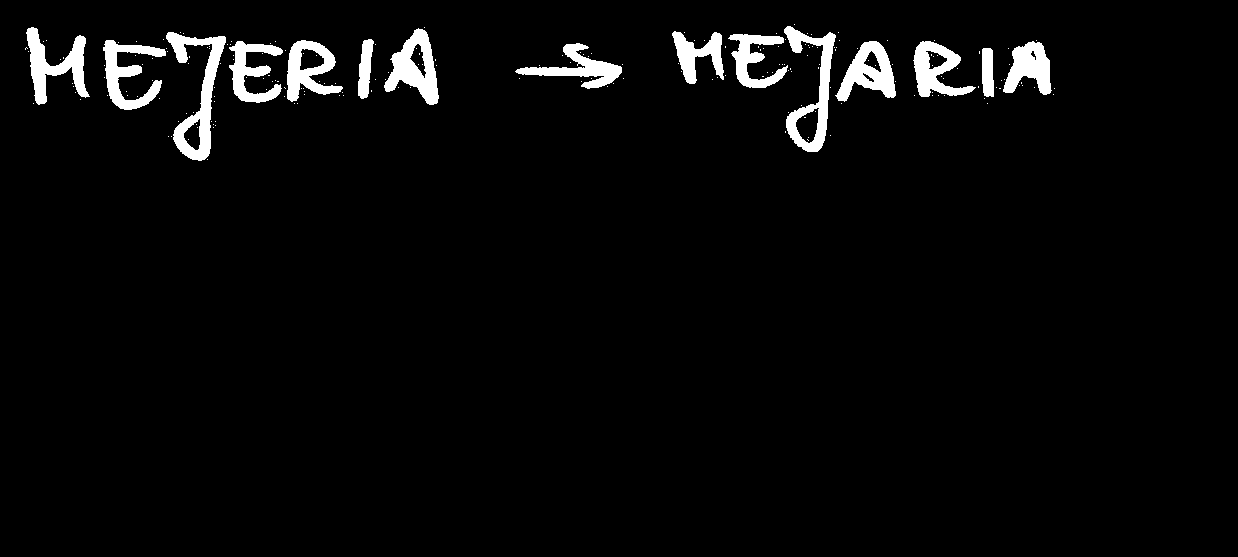 MEJERIA → MEJARIA